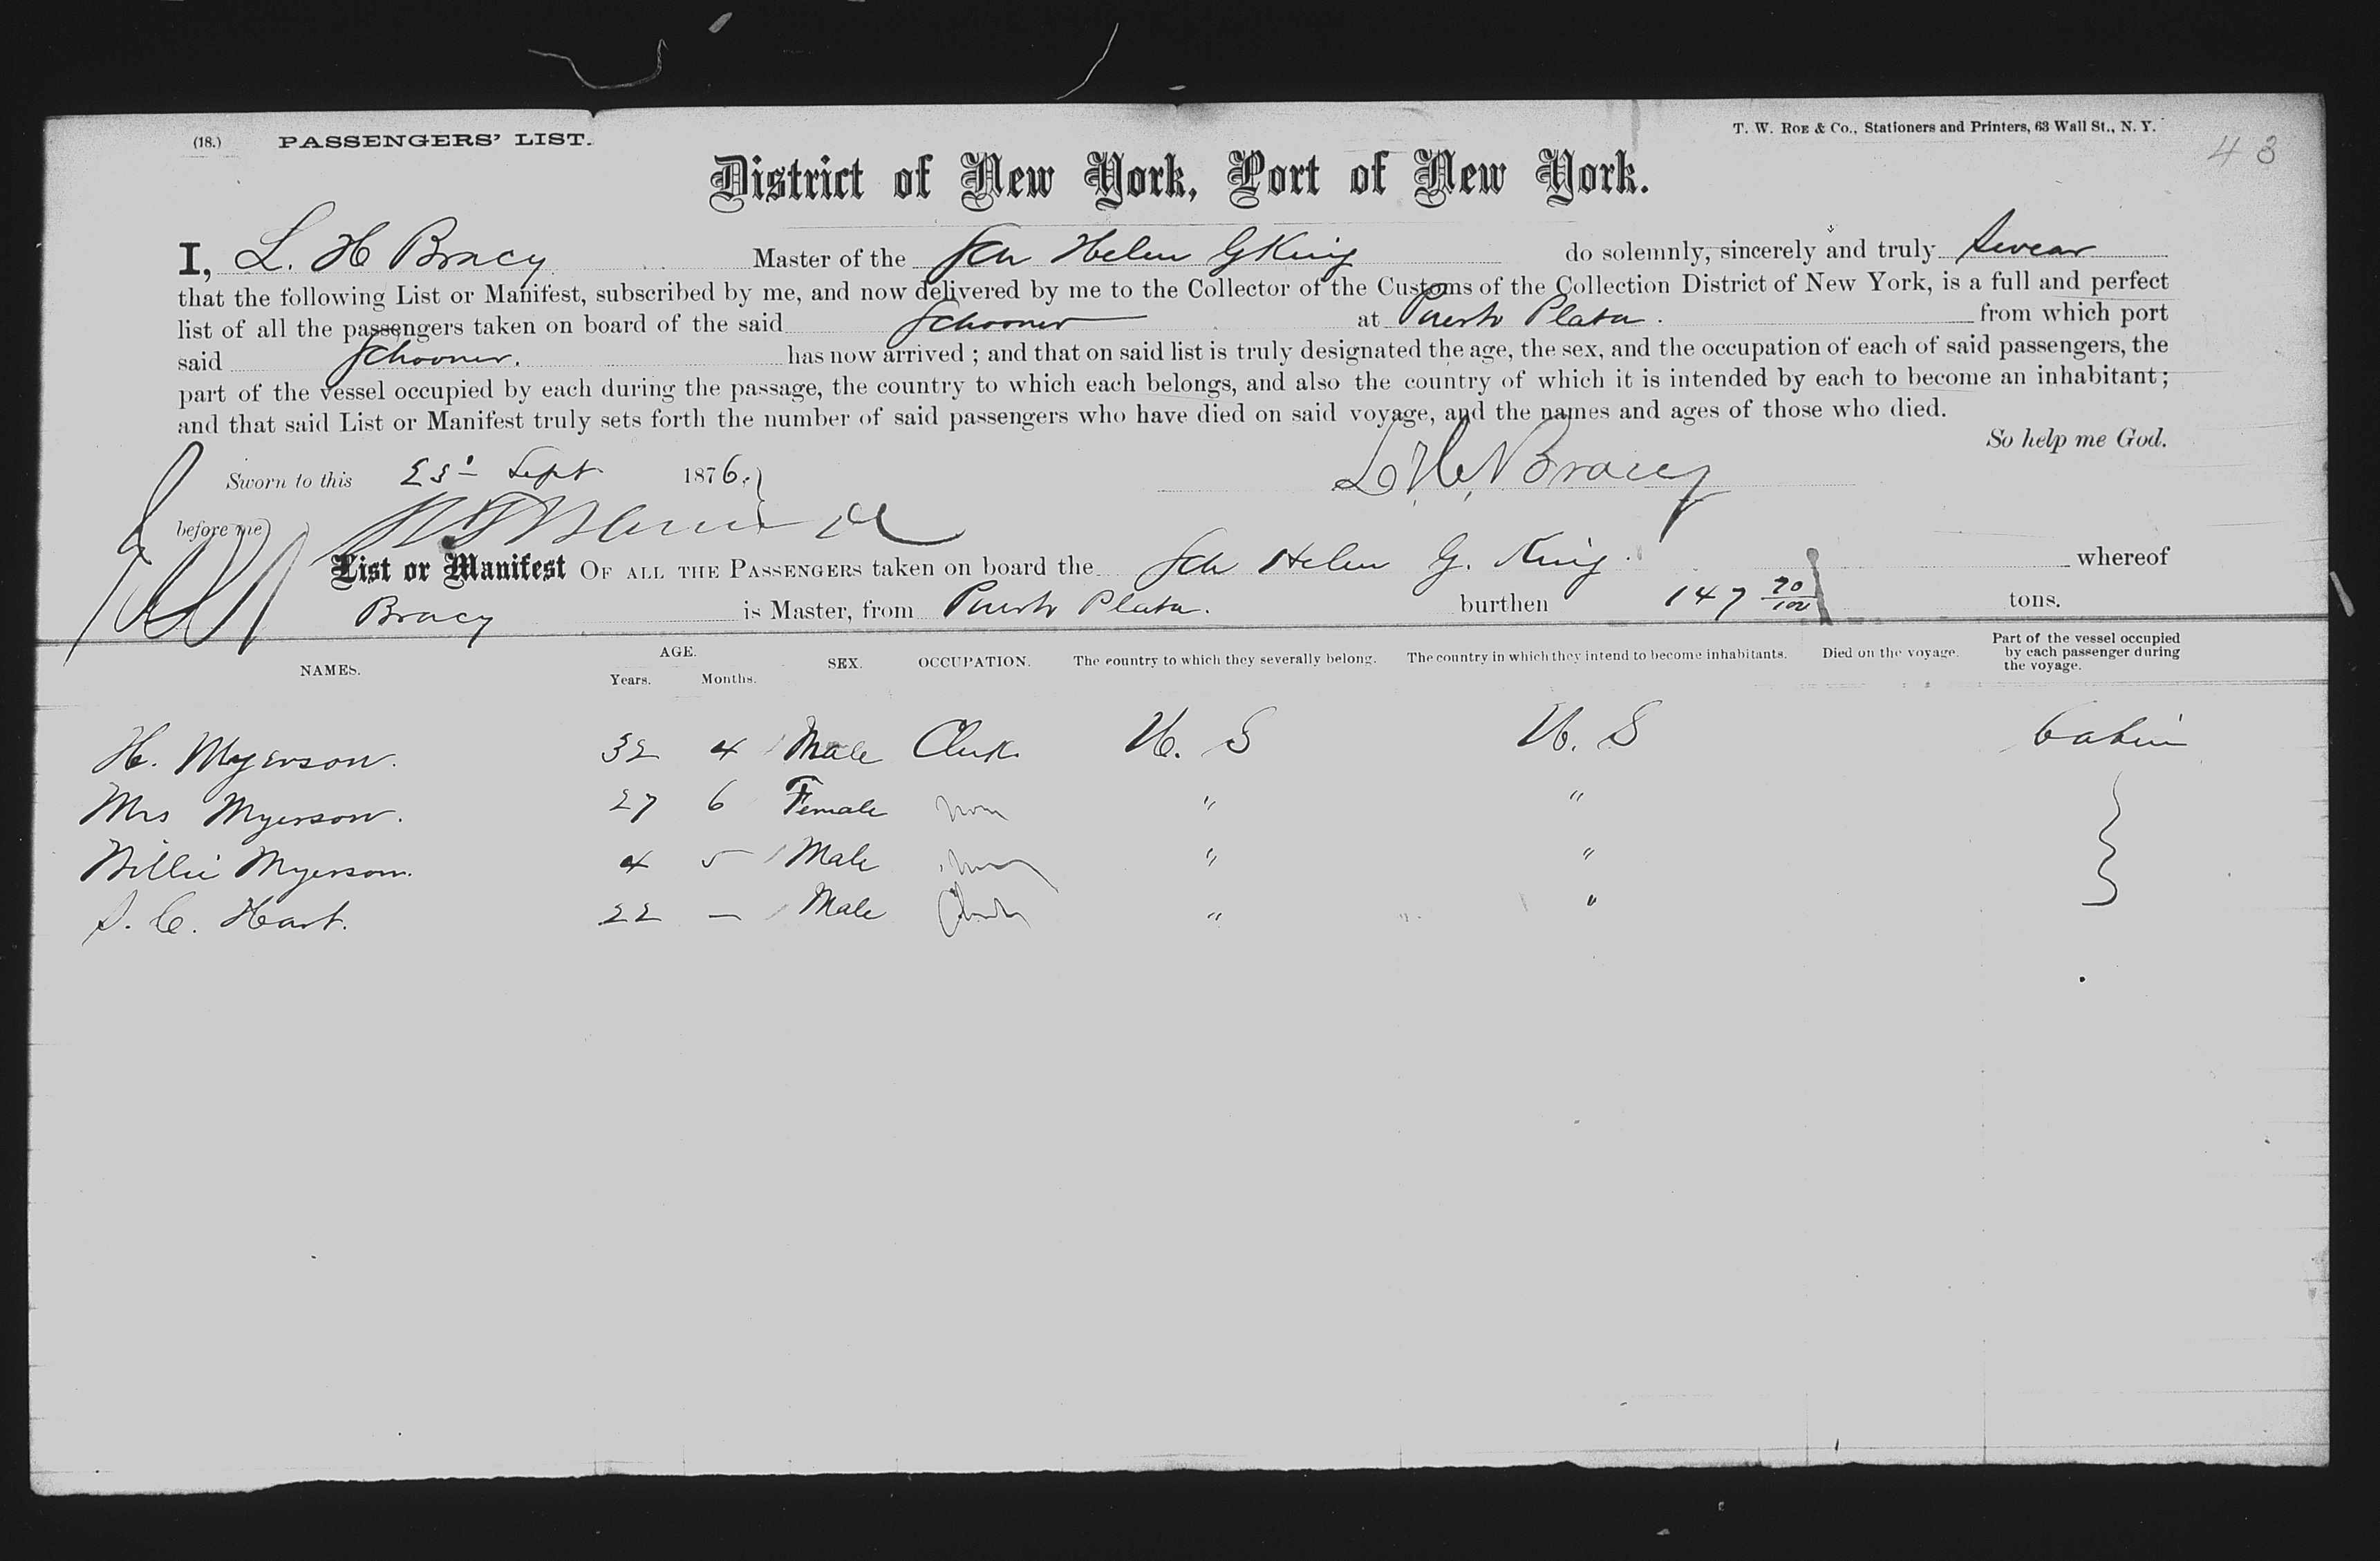 (18.) PASSENGERS' LIST.
T. W. ROE & Co., Stationers and Printers, 63 Wall St., N. Y.
43
District of New York, Port of New York.
I, L. H Bracy Master of the Sch Helen G King do solemnly, sincerely and truly swear
that the following List or Manifest, subscribed by me, and now delivered by me to the Collector of the Customs of the Collection District of New York, is a full and perfect
list of all the passengers taken on board of the said Schooner at Puerto Plata. from which port
said Schooner. has now arrived ; and that on said list is truly designated the age, the sex, and the occupation of each of said passengers, the
part of the vessel occupied by each during the passage, the country to which each belongs, and also the country of which it is intended by each to become an inhabitant;
and that said List or Manifest truly sets forth the number of said passengers who have died on said voyage, and the names and ages of those who died.
So help me God.
Sworn to this 23d Sept 1876.
L. H. Bracy
before me
List or Manifest OF ALL THE PASSENGERS taken on board the Sch Helen G. King. whereof
Bracy is Master, from Puerto Plata. burthen 147 70/100 tons.
NAMES. AGE. Years. Months. SEX. OCCUPATION. The country to which they severally belong. The country in which they intend to become inhabitants. Died on the voyage. Part of the vessel occupied by each passenger during the voyage.
H. Myerson. 32 4 Male Clerk U. S U. S Cabin
Mrs Myerson. 27 6 Female none " "
Willie Myerson. 4 5 Male none " "
S. C. Hart. 22 — Male " "